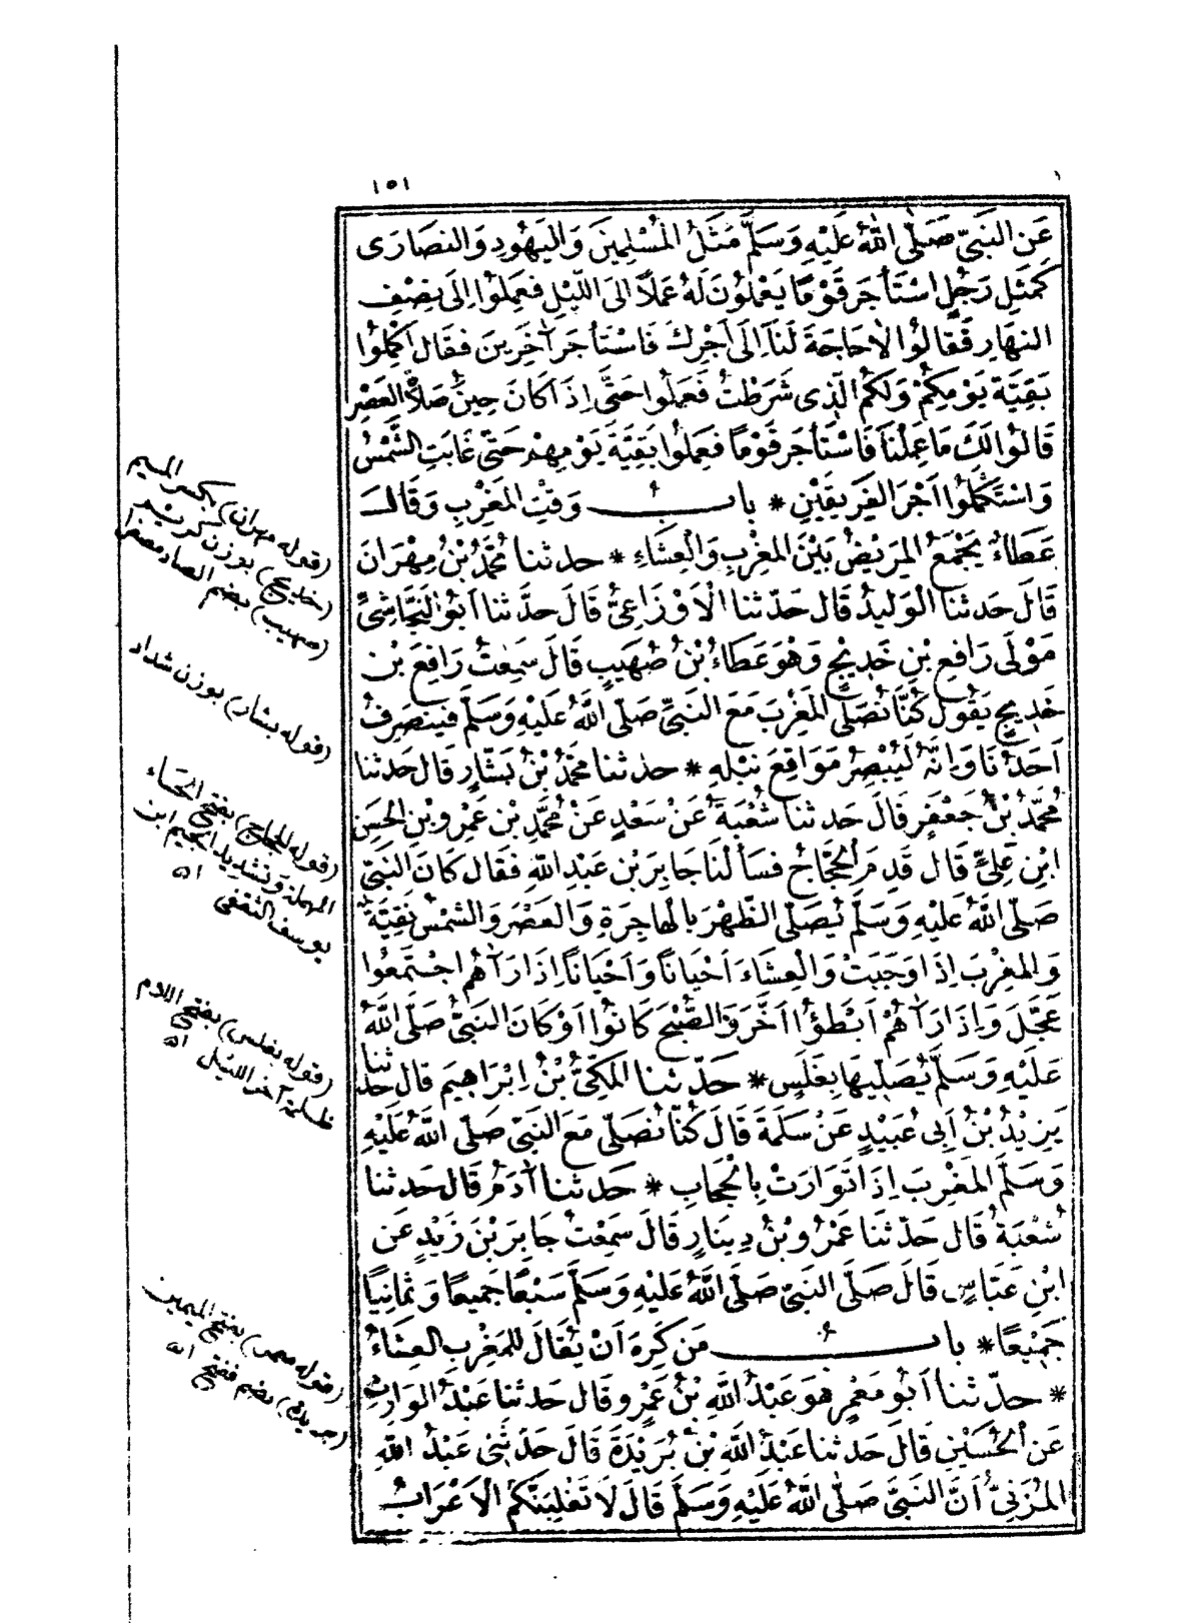 ١٥١
عَنِ النَّبِىِّ صَلَّى اللّٰهُ عَلَيْهِ وَسَلَّمَ مَثَلُ المُسْلِمِينَ وَاليَهُودِ وَالنَّصَارَى
كَمَثَلِ رَجُلٍ اسْتَأْجَرَ قَوْمًا يَعْمَلُونَ لَهُ عَمَلًا الَى اللَّيْلِ فَعَمِلُوا اِلَى نِصْفِ
النَّهَارِ فَقَالُوا لَا حَاجَةَ لَنَا اِلَى اَجْرِكَ فَاسْتَأْجَرَ آخَرِينَ فَقَالَ اَكْمِلُوا
بَقِيَّةَ يَوْمِكُمْ وَلَكُمُ الَّذِى شَرَطْتُ فَعَمِلُوا حَتَّى اِذَا كَانَ حِينَ صَلَاةِ العَصْرِ
قَالُوا لَكَ مَا عَمِلْنَا فَاسْتَأْجَرَ قَوْمًا فَعَمِلُوا بَقِيَّةَ يَوْمِهِمْ حَتَّى غَابَتِ الشَّمْسُ
وَاسْتَكْمَلُوا اَجْرَ الفَرِيقَيْنِ * بابُ وَقْتِ المَغْرِبِ وَقَالَ
عَطَاءٌ يَجْمَعُ المَرِيضُ بَيْنَ المَغْرِبِ وَالْعِشَاءِ * حدثنا مُحَمَّدُ بْنُ مِهْرَانَ
قَالَ حَدثنَا الْوَلِيدُ قَالَ حَدّثنا الْاَوْزَاعِىُّ قَالَ حدَّثنا اَبُو النَّجَاشِىِّ
مَوْلَى رَافِعِ بْنِ خَدِيجٍ وَهُوَ عَطَاءُ بْنُ صُهَيْبٍ قَالَ سَمِعْتُ رَافِعَ بْن
خَدِيجٍ يَقُولُ كُنَّا نُصَلِّى المَغْرِبَ مَعَ النَّبِىِّ صَلَّى اللّٰهُ عَلَيْهِ وَسَلَّمَ فَيَنْصَرِفُ
اَحَدُنَا وَاِنَّهُ لَيُبْصِرُ مَوَاقِعَ نَبْلِهِ * حدثنا مُحَمَّدُ بْنُ بَشَّارٍ قَالَ حَدثنا
مُحَمَّدُ بْنُ جَعْفَرٍ قَالَ حَدثنا شُعْبَةُ عَنْ سَعْدٍ عَنْ مُحَمَّدِ بْنِ عَمْرِو بْنِ الحَسَنِ
ابْنِ عَلِىٍّ قَالَ قَدِمَ الحَجَّاجُ فسَأَلْنَا جَابِرَ بْنَ عَبْدِ اللّٰهِ فَقَالَ كَانَ النَّبِىُّ
صَلَّى اللّٰهُ عَلَيْهِ وَسَلَّمَ يُصَلِّى الظُّهْرَ بِالْهَاجِرَةِ وَالْعَصْرَ وَالشَّمْسُ نَقِيَّةٌ
وَالمَغْرِبَ اِذَا وَجَبَتْ وَالْعِشَاءَ اَحْيَانًا وَاَحْيَانًا اِذَا رَآهُمُ اجْتَمَعُوا
عَجَّلَ وَاِذَا رَآهُمْ اَبْطَؤُا اَخَّرَ وَالصُّبْحَ كَانُوا اَوْ كَانَ النَّبِىُّ صَلَّى اللّٰهُ
عَلَيْهِ وَسَلَّمَ يُصَلِّيهَا بِغَلَسٍ * حَدّثنا المَكِّىُّ بْنُ اِبْرَاهِيمَ قَالَ حدثنا
يَزِيْدُ بْنُ اَبِى عُبَيْدٍ عَنْ سَلَمَةَ قَالَ كُنَّا نُصَلِّى مَعَ النَّبِىِّ صَلَّى اللّٰهُ عَلَيْهِ
وَسَلَّمَ المَغْرِبَ اِذَا تَوَارَتْ بِالْحِجَابِ * حَدثنا آدَمُ قَالَ حَدثنا
شُعْبَةُ قَالَ حَدّثنَا عَمْرُو بْنُ دِينَارٍ قَالَ سَمِعْتُ جَابِرَ بْنَ زَيْدٍ عَنِ
ابْنِ عَبَّاسٍ قَالَ صَلَّى النَّبِىُّ صَلَّى اللّٰهُ عَلَيْهِ وَسَلَّمَ سَبْعًا جَمِيعًا وَثَمَانِيًا
جَمِيْعًا * بابُ مَن كَرِهَ اَنْ يُقَالَ لِلمَغْرِبِ العِشَاءُ
* حدّثنا اَبُو مَعْمَرٍ هُوَ عَبْدُ اللّٰهِ بْنُ عَمْرٍو قَالَ حَدثنا عَبْدُ الوَارِثِ
عَنِ الْحُسَيْنِ قَالَ حَدثنا عَبْدُ اللّٰهِ بْنُ بُرَيْدَةَ قَالَ حَدَثَنِى عَبْدُ اللّٰهِ
المُزَنِىُّ اَنَّ النَّبِىَّ صَلَّى اللّٰهُ عَلَيْهِ وَسَلَّمَ قَالَ لَا تَغْلِبَنَّكُمُ الاَعْرَابُ
(قوله مهران) بكسر الميم
(خديج) بوزن كريم
(صهيب) بضم الصاد مصغرا
(قوله بشار) بوزن شداد
(قوله الحجاج) بفتح الحاء
المهملة وتشديد الجيم ابن
يوسف الثقفى اه
(قوله بغلس) بفتح اللام
ظلمة آخر الليل اه
(قوله معمر) بفتح الميمين
(بريدة) بضم ففتح اه